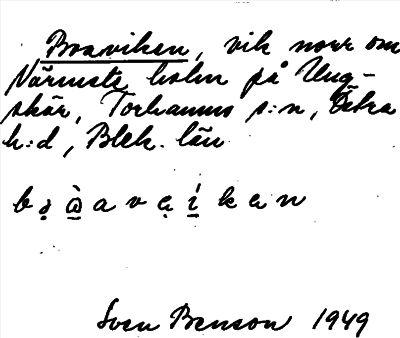 Boaviken, vik norr om
Närmsta holm på Ung-
skär, Torhamns s:n, Östra
h:d, Blek. län
bo̤ὼ̱ava̤í̱kan
Sven Benson 1949